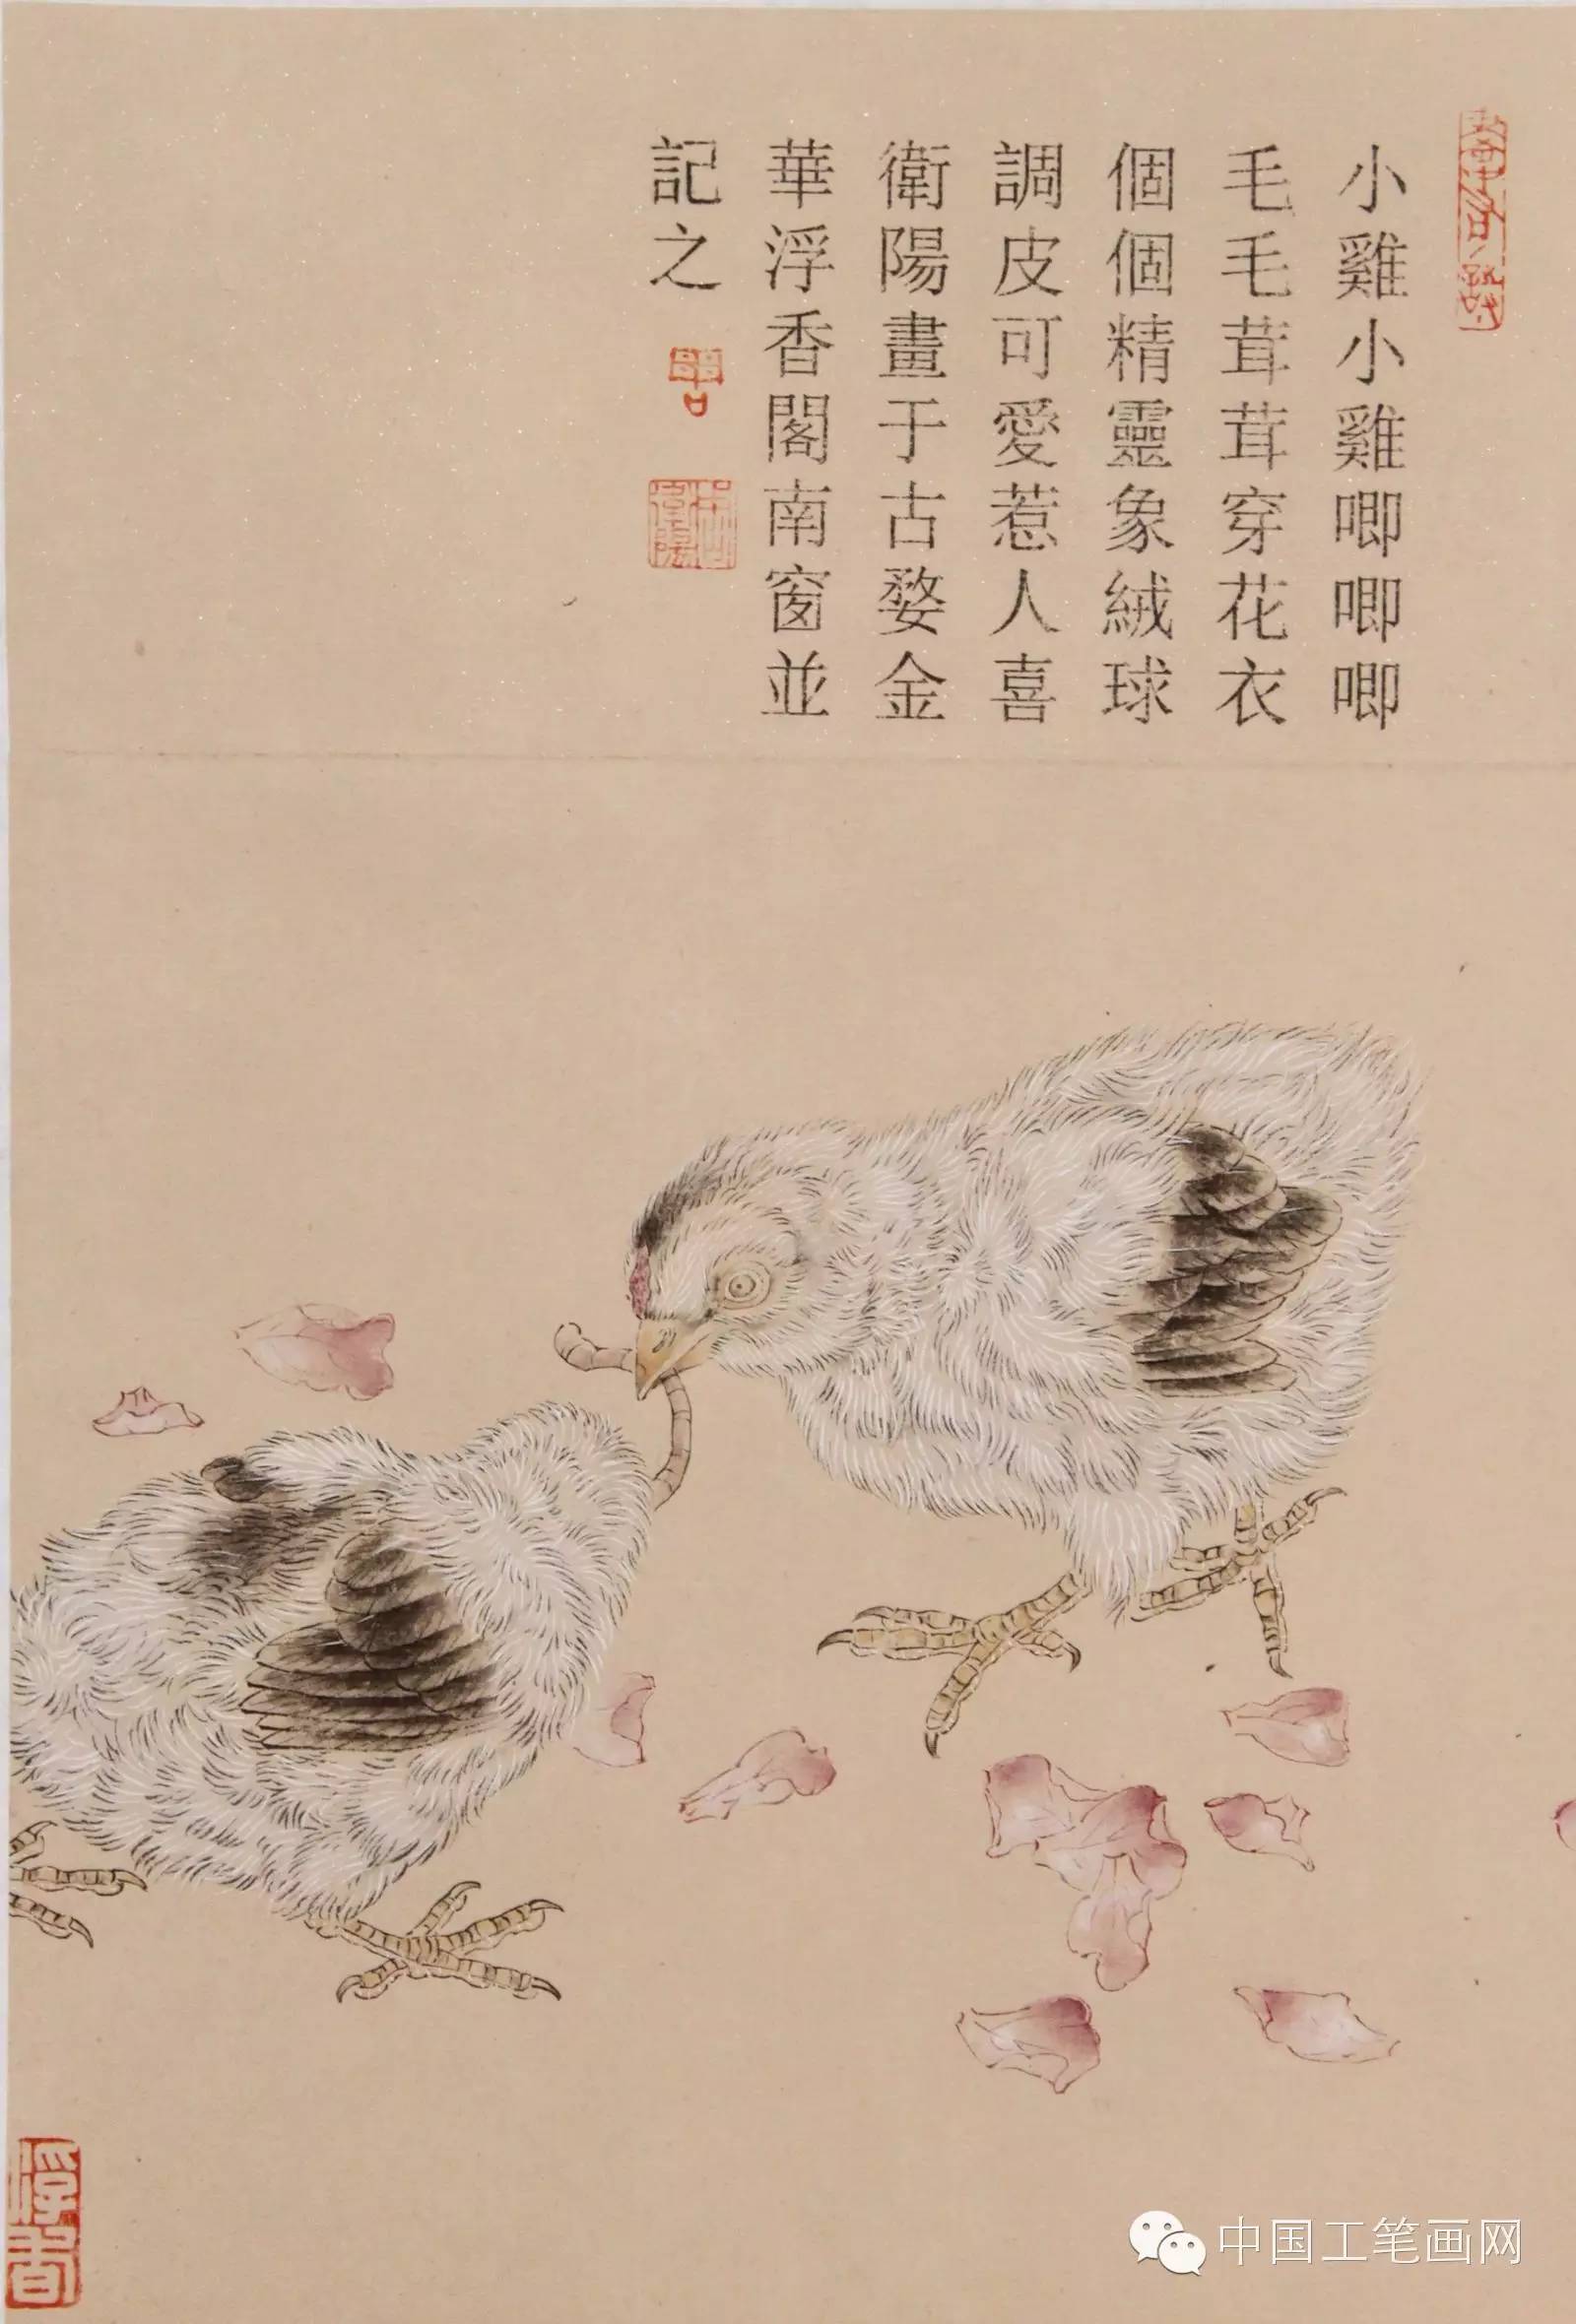 小雞小雞唧唧唧
毛毛茸茸穿花衣
個個精靈象絨球
調皮可愛惹人喜
衛陽畫于古婺金
華浮香閣南窗並
記之
浮香
中国工笔画网